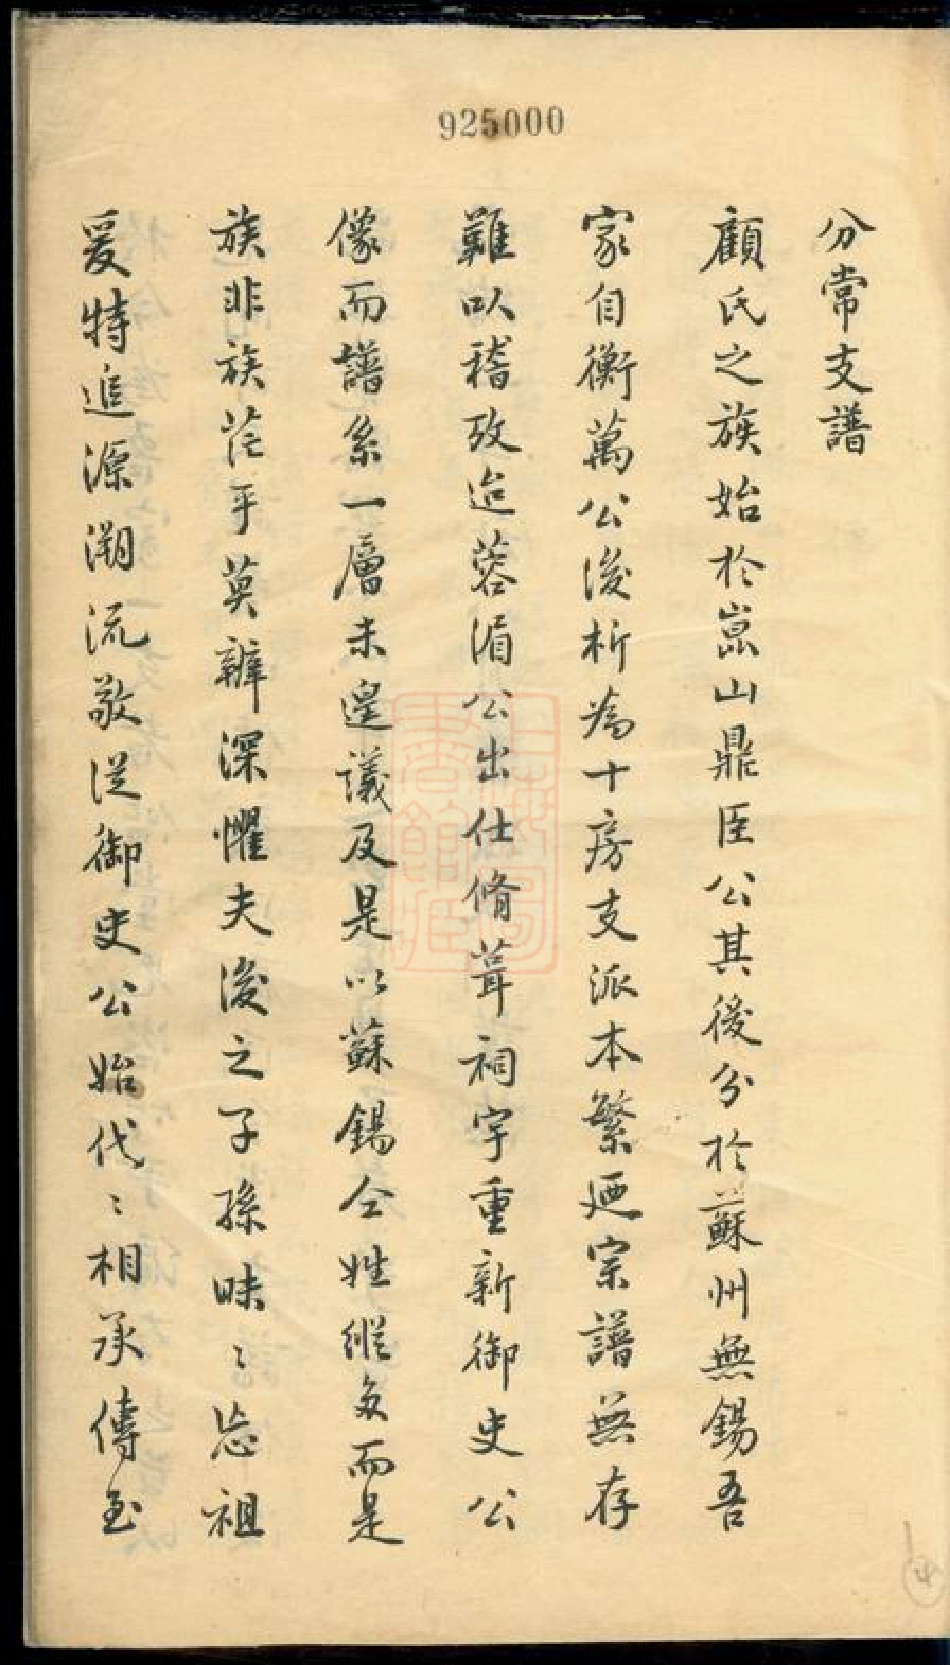 925000
分常支譜
顧氏之族始於崑山鼎臣公其後分於蘇州無錫吾
家自衡萬公後析為十房支派本繁廼宗譜無存
難以稽攷迨蓉湄公出仕脩葺祠宇重新御史公
像而譜系一層未遑議及是以蘇錫仝姓縱多而是
族非族茫乎莫辦深懼夫後之子孫昧〻忘祖
爰特追源溯流敬從御史公始代〻相承傳至
上海圖
書館藏